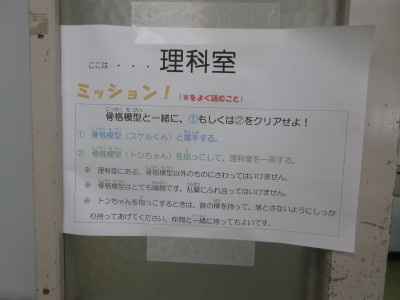 ここは ・・・理科室
ミッション！（※をよく読むこと）
骨格模型と一緒に、①もしくは②をクリアせよ！
① 骨格模型（スケルくん）と握手する。
② 骨格模型（トンちゃん）を抱っこして、理科室を一周する。
※ 理科室にある、骨格模型以外のものにさわってはいけません。
※ 骨格模型はとても繊細です。乱暴にふれ合ってはいけません。
※ トンちゃんを抱っこするときは、鉄の棒を持って、落とさないようにしっか
り持ってあげてください。仲間と一緒に持ってもよいです。